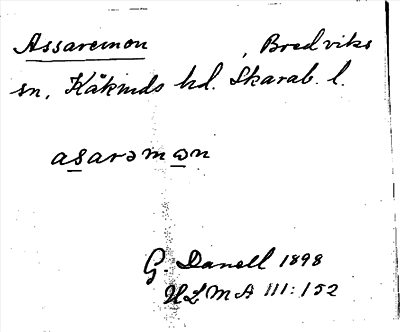 Assaremon , Bredviks
sn, Kåkinds hd. Skarab. l.
asarəmən
G. Danell 1898
ULMA III:152